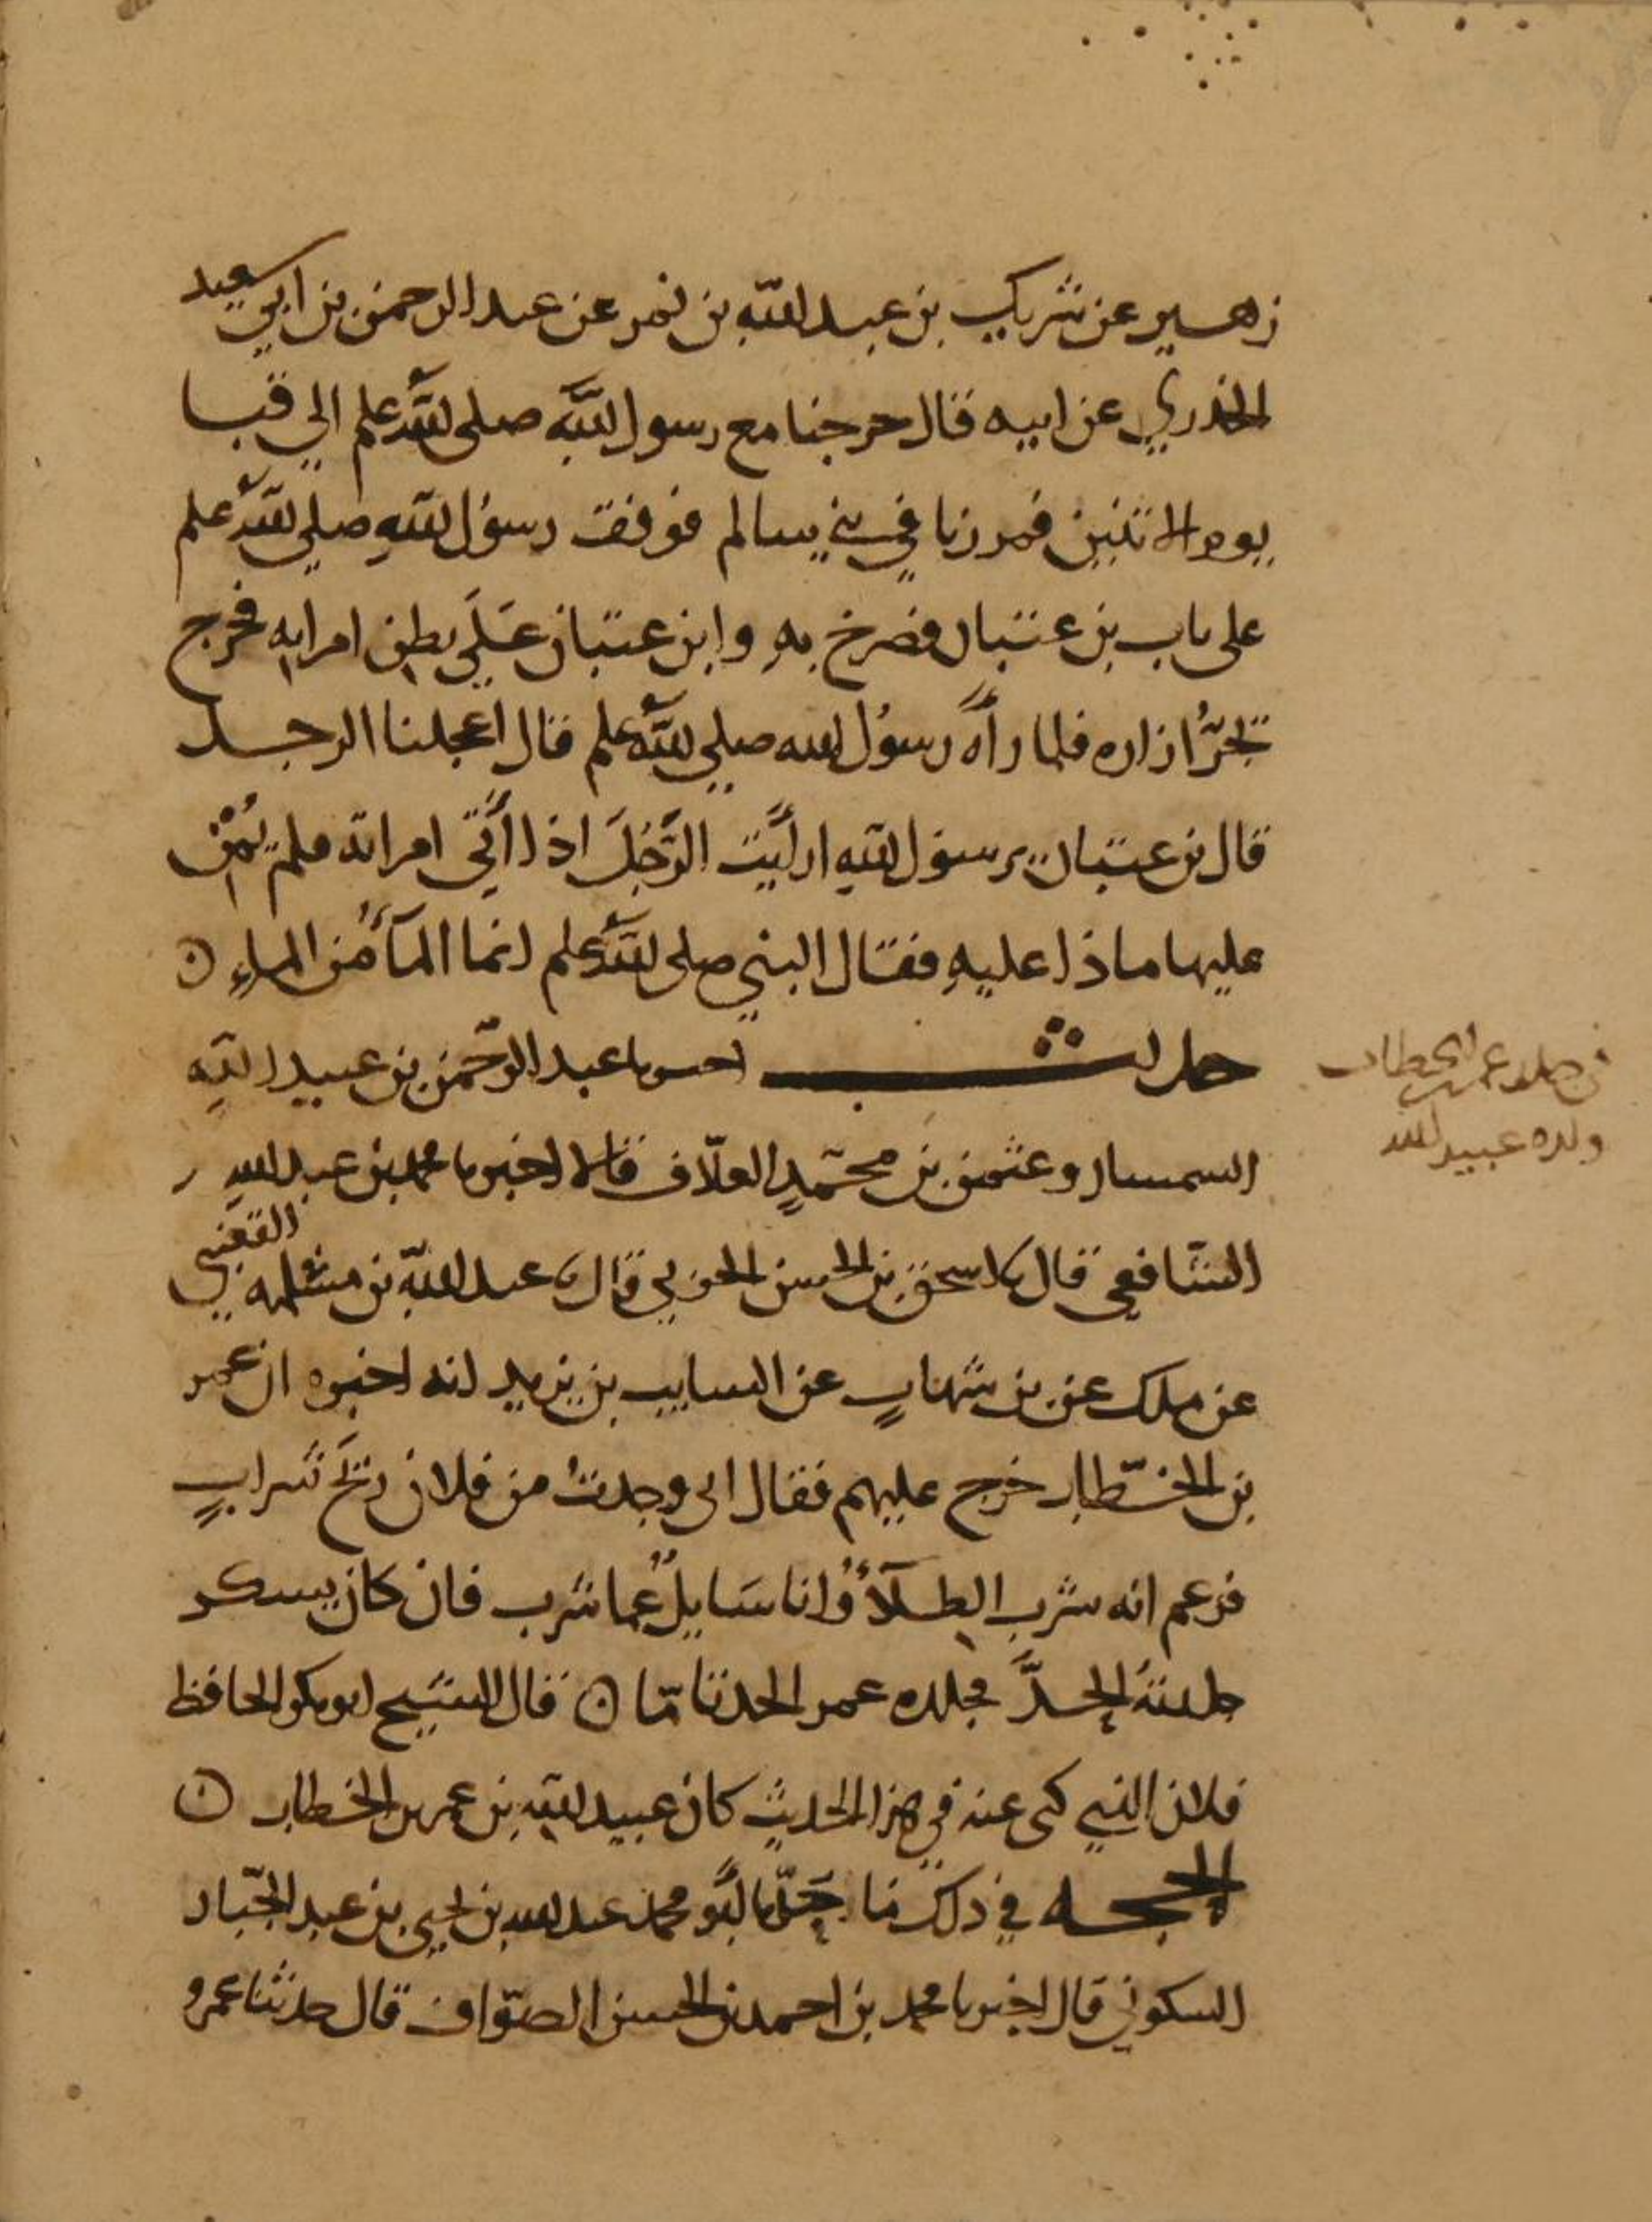 زهير عن شريك بن عبد الله بن نمر عن عبد الرحمن بن ابي سعيد
الخذري عن ابيه قال خرجنا مع رسول الله صلى الله علم الي قبا
يوم الاثنين فمررنا في بني سالم فوقف رسول الله صلي الله علم
على باب بن عتبان فصرخ به وابن عتبان على بطن امراته فخرج
يجر ازاره فلما رآه رسول الله صلي الله علم قال اعجلنا الرجل
قال بن عتبان يرسول الله ارأيت الرجل اذا أتي امراته فلم يمن
عليها ماذا عليه فقال النبي صلى الله علم انما المآ من الماء ن
حديث اخبرنا عبد الرحمن بن عبيد الله
السمسار وعثمن بن محمد العلاف قالا اخبرنا محمد بن عبد الله
الشافعي قال نا اسحق بن الحسن الحربي قال نا عبد الله بن مسلمه القعنبي
عن ملك عن بن شهاب عن السايب بن يزيد انه اخبره ان عمر
بن الخطاب خرج عليهم فقال اني وجدت من فلان ريح شراب
فزعم انه شرب الطلآء وانا سايل عما شرب فان كان يسكر
جلدته الحد فجلده عمر الحد تاما ن قال الشيخ ابو بكر الحافظ
فلان الذي كنى عنه في هذا الحديث كان عبيد الله بن عمر بن الخطاب ن
الحجه في ذلك ما نا أبو محمد عبد الله بن يحيى بن عبد الجبار
السكوني قال اخبرنا محمد بن احمد بن الحسن الصواف قال حدثنا عمرو
في جلد عمر بن الخطاب
ولده عبيد الله